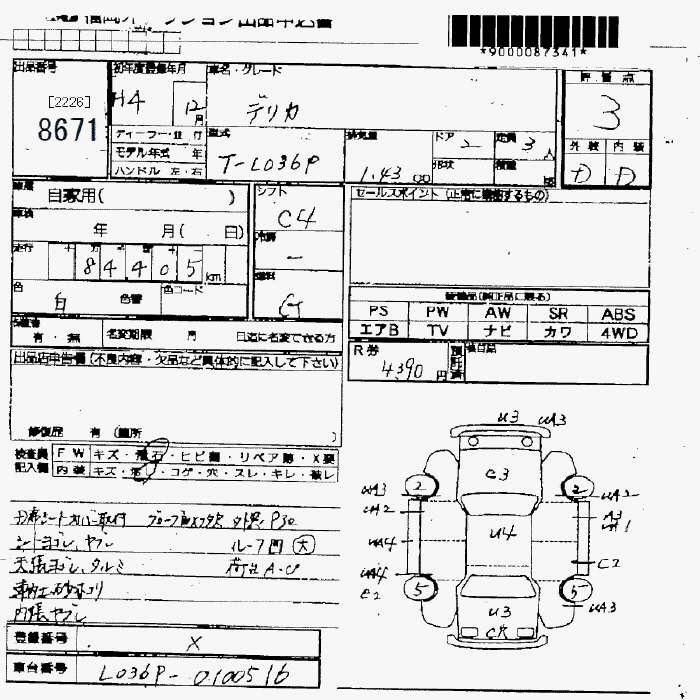 *9000087341*
出品番号 初年度登録年月 車名・グレード 評 価 点
[2226]
8671
H4 12月 デリカ 3
ディーラー・並 行 型式 排気量 ドア 2 定員 3人 外 装 内 装
モデル年式 年 T-L036P 1.43 形状 積量 D D
ハンドル 左・右
車歴 自家用( ) シフト C4 セールスポイント
車検 年 月( 日) 冷房 -
走行 8 4 4 0 5 km 燃料 G
色 白 色替 色コード
装備品(純正品に限る)
PS PW AW SR ABS
エアB TV ナビ カワ 4WD
有・無 名変期限 月 日迄に名変できる方
R券 4390円 預託済
出品店申告欄(不良内容・欠品など具体的に記入して下さい)
修復歴 有(箇所 )
検査員 F W キズ・飛石・ヒビ割・リペア跡・X要
記入欄 内 装 キズ・コゲ・穴・スレ・キレ・破レ
シートヨゴレ、ヤブレ ルーフ凹 大
天張ヨゴレ、タルミ 荷台A・U
内張ヤブレ
登録番号 X
車台番号 L036P-0100516
U3 UA3
C3
UA3 2 2 UA2
UA2 A3
UA4 U4 UA1
C2
UA4
C2 5 5 UA3
U3
CR